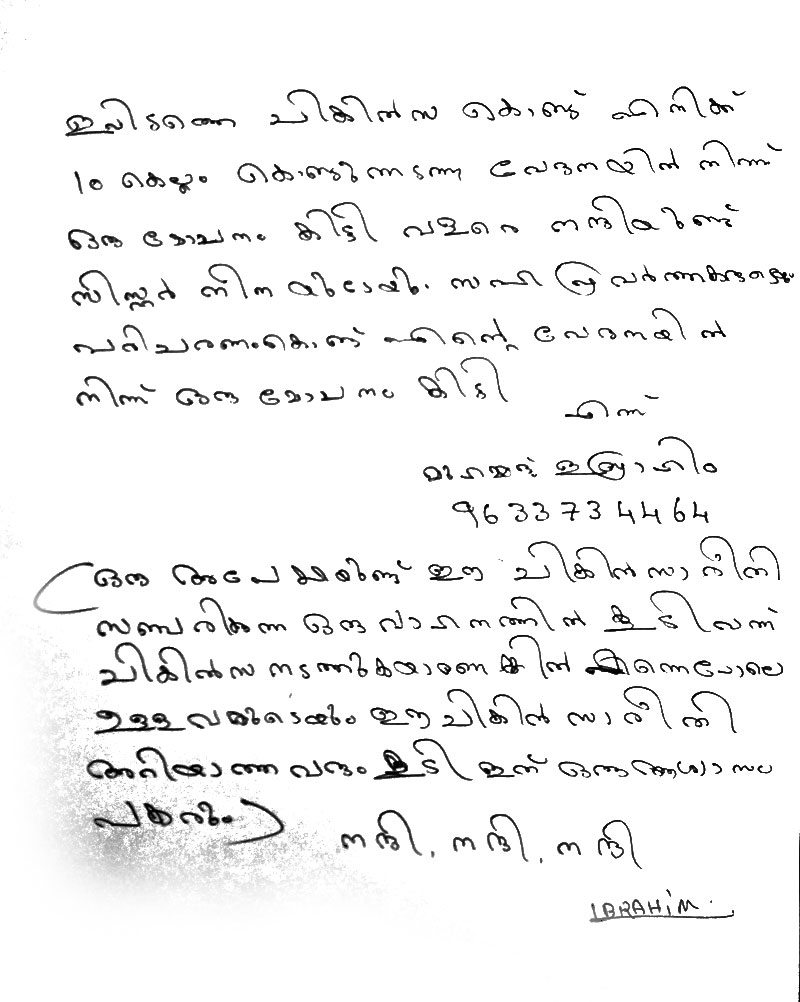 ഇവിടത്തെ ചികിൽസ കൊണ്ട് എനിക്ക്
10 കെല്ലം കൊണ്ടുനടന്ന വേദനയിൽ നിന്ന്
ഒരു മോചനം കിട്ടി വളരെ നന്ദിയുണ്ട്
സിസ്റ്റർ സഹ പ്രവർത്തകരുടെയും
പരിചരണംകൊണ്ട് എന്റെ വേദനയിൽ
നിന്ന് ഒരു മോചനം കിട്ടി
എന്ന്
മുഹമ്മദ് ഇബ്രാഹിം
9633734464
(ഒരു അപേക്ഷയുണ്ട് ഈ ചികിൽസാ രീതി
സഞ്ചരിക്കുന്ന ഒരു വാഹനത്തിൽ കൂടി വന്ന്
ചികിൽസ നടത്തുകയാണെങ്കിൽ എന്നെപോലെ
ഉള്ളവരുടെയും ഈ ചികിൽസാ രീതി
അറിയാത്തവരും കൂടി ഇത് ഒരു ആശ്വാസം
പകരും)
നന്ദി, നന്ദി, നന്ദി
IBRAHIM.